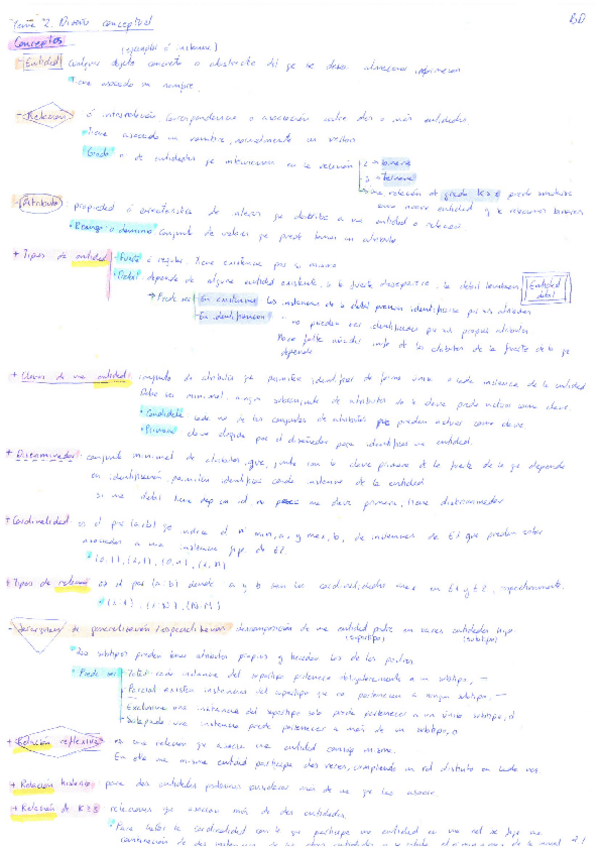 Tema 2. Diseño conceptual BD
Conceptos
(ejemplar ó instancia)
- Entidad cualquier objeto concreto o abstracto del qe se desea almacenar información
Tiene asociado un nombre.
- Relación ó interrelación, correspondencia o asociación entre dos o más entidades
Tiene asociado un nombre, normalmente un verbo
Grado nº de entidades qe intervienen en la relación 2 = binaria
3 = ternaria
una relación de grado K≥3 puede
una nueva entidad y k relaciones binarias
- Atributo propiedad ó característica de interés qe describe a una entidad o relación
Rango o dominio conjunto de valores qe puede tomar un atributo
+ Tipos de entidad Fuerte ó regular. Tiene existencia por si misma
Debil depende de alguna entidad existente, si la fuerte desaparece, la debil también Entidad debil
Puede ser En existencia las instancias de la debil pueden identificarse por sus atributos
En identificación no pueden ser identificadas por sus propios atributos
Hace falta añadir info de los atributos de la fuerte de la qe
depende
+ Claves de una entidad conjunto de atributos qe permiten identificar de forma única a cada instancia de la entidad
Debe ser minimal: ningún subconjunto de atributos de la clave puede actuar como clave.
Candidata cada uno de los conjuntos de atributos qe pueden actuar como clave.
Primaria clave elegida por el diseñador para identificar una entidad.
+ Discriminador conjunto minimal de atributos, que, junto con la clave primaria de la fuerte de la qe depende
en identificación permiten identificar cada instancia de la entidad
si una debil tiene dep en id, no una clave primaria, tiene discriminador
+ Cardinalidad es el par (a,b) qe indica el nº min, a, y max, b, de instancias de E1 que pueden estar
asociadas a una instancia de E2.
(0,1), (1,1), (0,N), (1,N)
+ Tipos de relación es el par (a:b) donde a y b son las cardinalidades max en E1 y E2, respectivamente.
(1:1), (1:N), (N:M)
- Jerarquías de generalización/especialización descomposición de una entidad padre en varias entidades hijas
(supertipo) (subtipo)
Los subtipos pueden tener atributos propios y heredan los de los padres
Puede ser Total cada instancia del supertipo pertenece obligatoriamente a un subtipo, —
Parcial existen instancias del supertipo que no pertenecen a ningún subtipo, —
Exclusiva una instancia del supertipo solo puede pertenecer a un único subtipo, ó
Solapada una instancia puede pertenecer a más de un subtipo, o
+ Relación reflexiva es una relación qe asocia una entidad consigo misma.
En ella una misma entidad participa dos veces, cumpliendo un rol distinto en cada vez.
+ Relación para dos entidades podemos más de una qe las asocie.
+ Relación de K≥3 relaciones qe asocian más de dos entidades.
Para hallar la cardinalidad con la qe participa una entidad en una rel se fija una